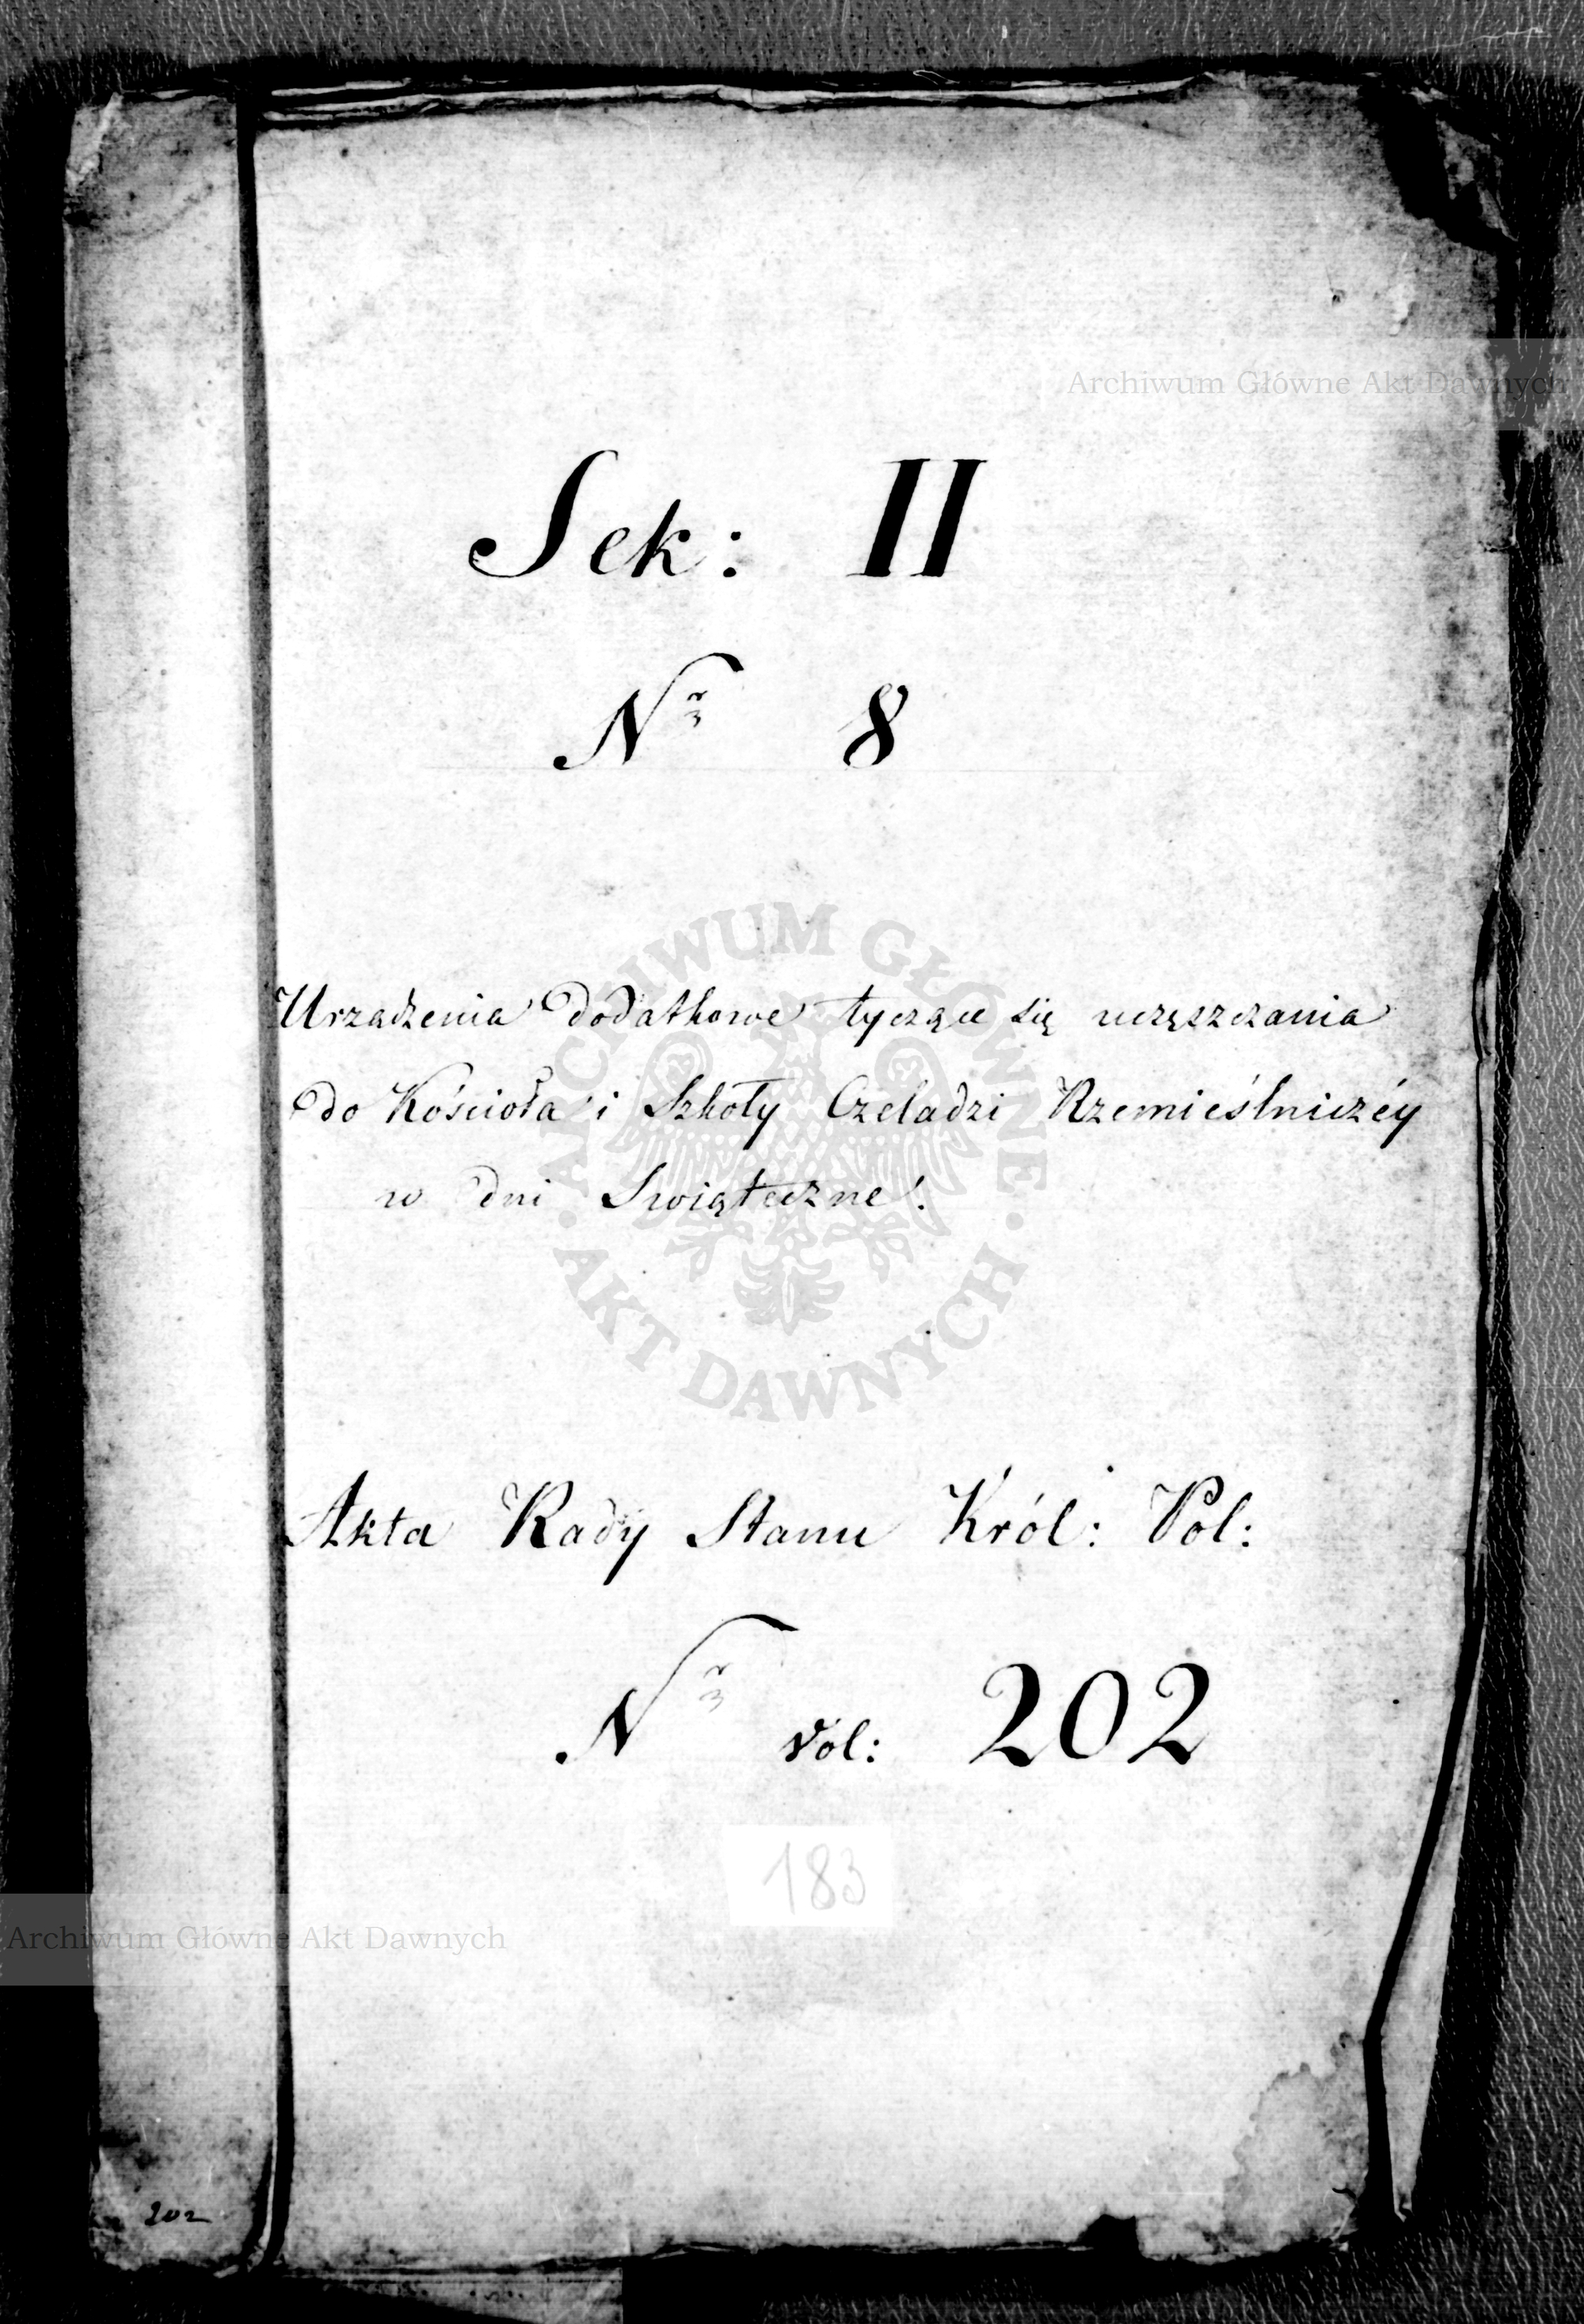 Archiwum Główne Akt Dawnych
Sek: II
Nr 8
Urządzenia Dodatkowe tyczące się uczęszczania
do Kościoła i Szkoły Czeladzi Rzemieślniczéy
w dni Swiąteczne.
ARCHIWUM GŁÓWNE · AKT DAWNYCH ·
Akta Rady Stanu Król: Pol:
Nr vol: 202
183
Archiwum Główne Akt Dawnych
202